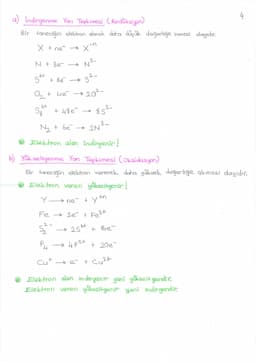 4
a) İndirgenme Yarı Tepkimesi (Redüksiyon)
Bir taneciğin elektron alarak daha düşük değerliğe inmesi olayıdır.
X + ne⁻ → X⁻ⁿ
N + 3e⁻ → N³⁻
S⁶⁺ + 8e⁻ → S²⁻
O₂ + 4e⁻ → 2O²⁻
S₈⁴⁺ + 48e⁻ → 8S²⁻
N₂ + 6e⁻ → 2N³⁻
Elektron alan indirgenir!
b) Yükseltgenme Yarı Tepkimesi (Oksidasyon)
Bir taneciğin elektron vererek, daha yüksek değerliğe çıkması olayıdır.
Elektron veren yükseltgenir!
Y → ne⁻ + Y⁺ⁿ
Fe → 3e⁻ + Fe³⁺
S₂²⁻ → 2S⁶⁺ + 8e⁻
P₄ → 4P⁵⁺ + 20e⁻
Cu⁺ → e⁻ + Cu²⁺
Elektron alan indirgenir yani yükseltgendir.
Elektron veren yükseltgenir yani indirgendir.